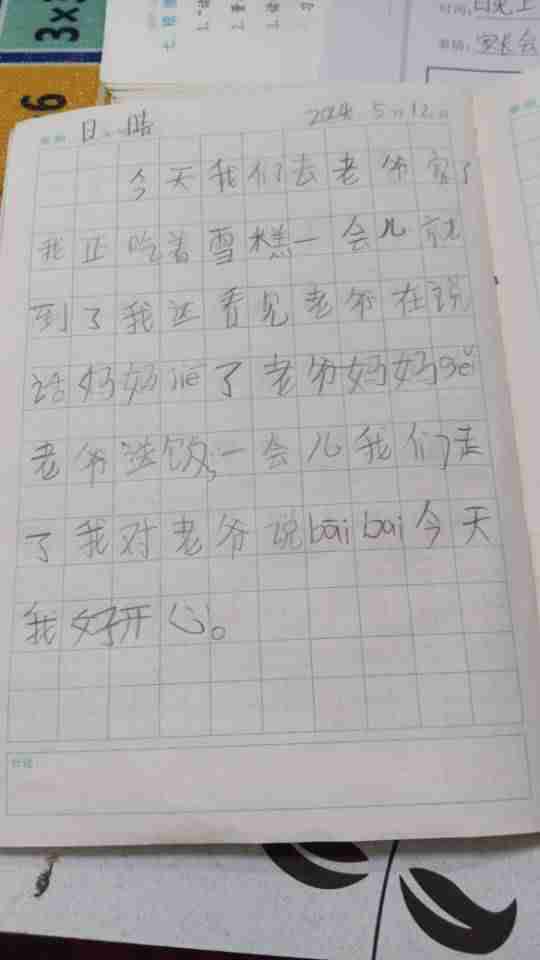 3×
6
时间:
日 晴 2024. 5月12日
今天我们去老爷家了
我正吃着雪糕一会儿就
到了我还看见老爷在说
话妈妈jiē了老爷妈妈gěi
老爷送饭,一会儿我们走
了我对老爷说bāibai今天
我好开心。